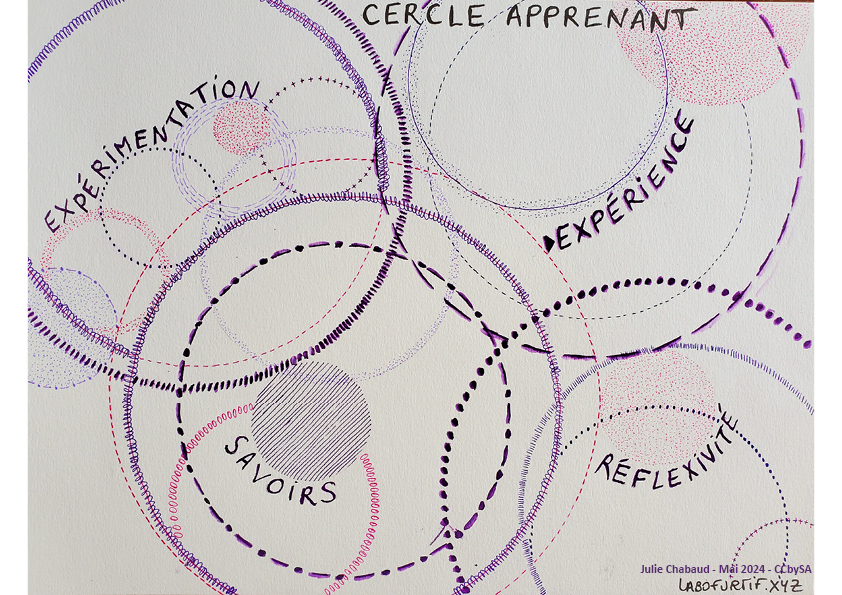 CERCLE APPRENANT
EXPÉRIMENTATION
EXPÉRIENCE
SAVOIRS
RÉFLEXIVITÉ
Julie Chabaud - Mai 2024 - CCbySA
LABOFURTIF.XYZ